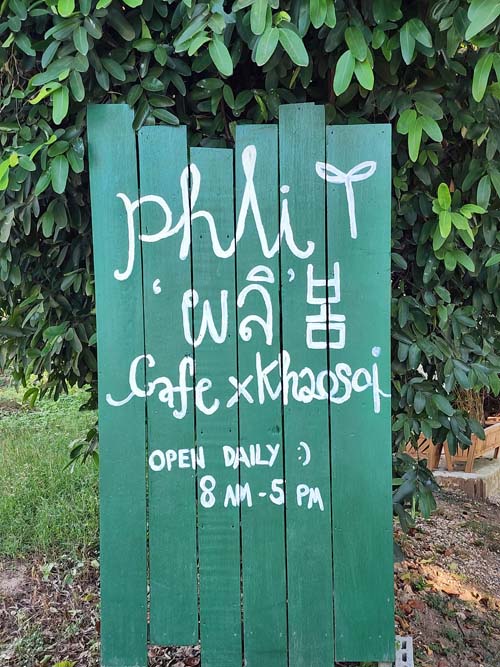 phli
‘ผลิ’ 봄
Cafe x Khaosoi
OPEN DAILY :)
8 AM - 5 PM